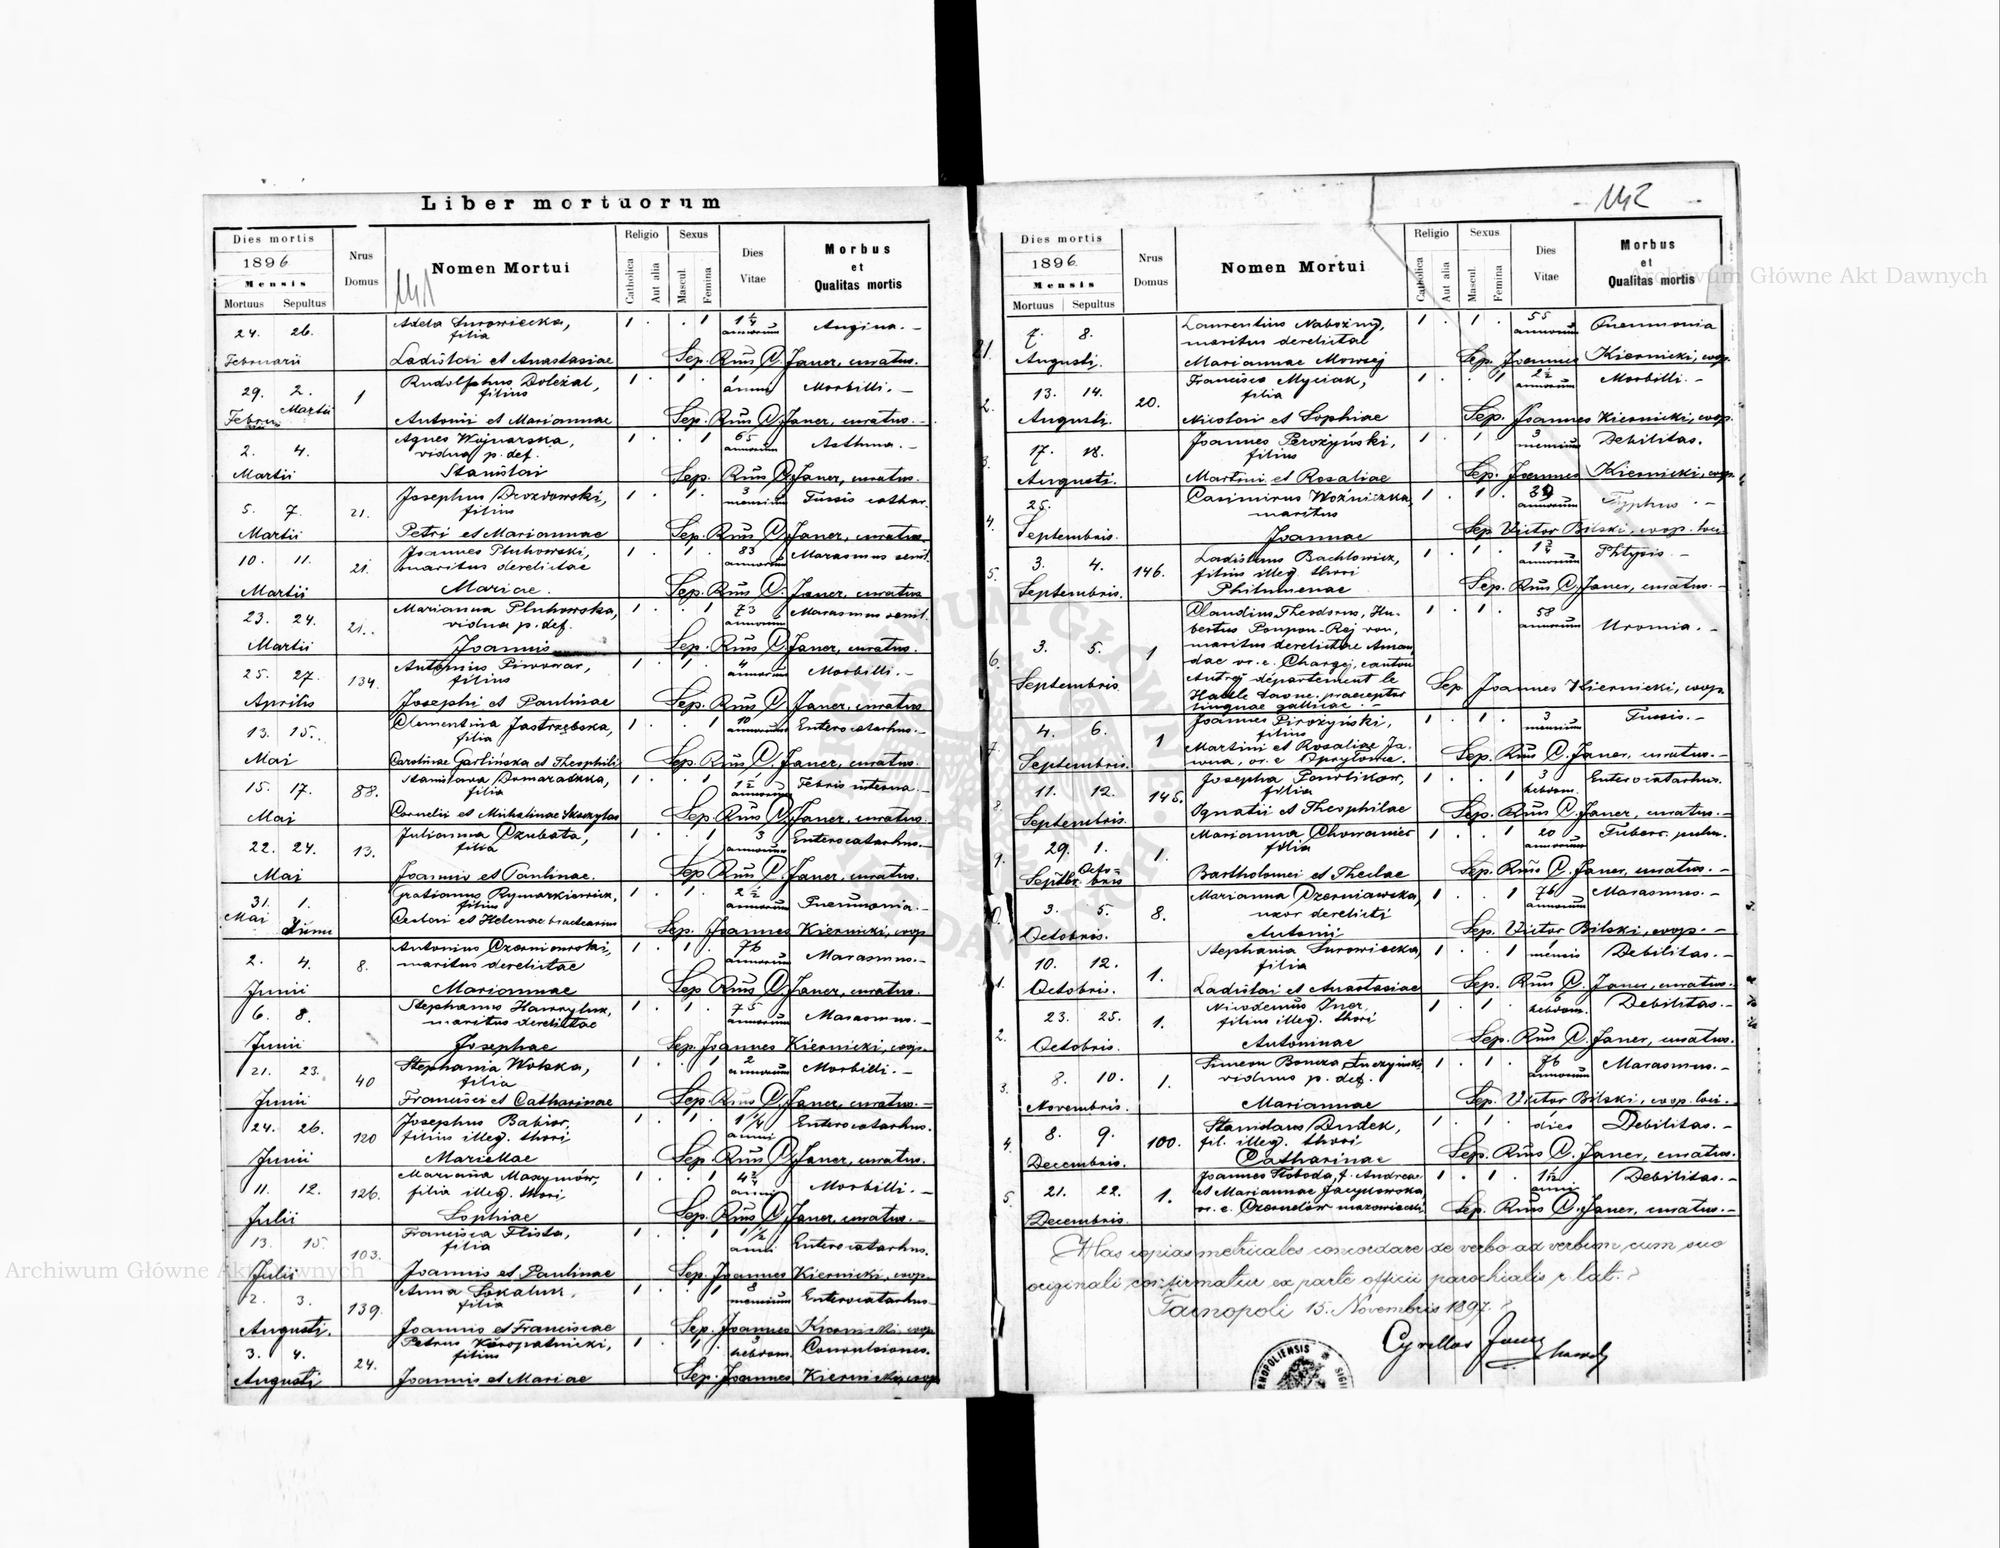 Liber mortuorum
Dies mortis
1896
Mensis
Mortuus Sepultus
Nrus
Domus
Nomen Mortui
141
Religio
Catholica
Aut alia
Sexus
Mascul.
Femina
Dies
Vitae
Morbus
et
Qualitas mortis
24. 26. Adela Surowiecka, 1 . . 1 1 1/4 annorum Angina. –
filia
Februarii Ladislai et Anastasiae Sep. Rmus C. Janer, curatus.
29. 2. 1 Rudolphus Doležal, 1 . 1 . annus Morbilli. –
Martii filius
Febru. Antonii et Mariannae Sep. Rmus C. Janer, curatus. –
2. 4. Agnes Wojnarska, 1 . . 1 65 annorum Asthma. –
vidua p. def.
Martii Stanislai Sep. Rmus C. Janer, curatus.
5. 7. 21. Josephus Drozdowski, 1 . 1 . 3 mensium Tussis cathar.
filius
Martii Petri et Mariannae Sep. Rmus C. Janer, curatus.
10. 11. 21. Joannes Pluhowski, 1 . 1 . 83 annorum Marasmus senil.
maritus derelictae
Martii Mariae. Sep. Rmus C. Janer, curatus
23. 24. 21. Marianna Pluhowska, 1 . . 1 73 annorum Marasmus senil.
vidua p. def.
Martii Joannis Sep. Rmus C. Janer, curatus.
25. 27. 134. Antonius Piwowar, 1 . 1 . 4 annorum Morbilli. –
filius
Aprilis Josephi et Paulinae Sep. Rmus C. Janer, curatus.
13. 15. Clementina Jastrzębska, 1 . . 1 10 annorum Enterocatarhus. –
filia
Mai Carolinae Garlińska et Theophili Sep. Rmus C. Janer, curatus.
15. 17. 88. Stanislava Domaradzka, 1 . . 1 1 1/2 annorum Febris interna. –
filia
Mai Cornelii et Michelinae Sep. Rmus C. Janer, curatus.
22. 24. 13. Julianna Czubata, 1 . . 1 3 annorum Enterocatarhus. –
filia
Mai Joannis et Paulinae. Sep. Rmus C. Janer, curatus.
31. 1. Gratianus Rymarkiewicz, 1 . 1 . 2 1/2 annorum Pneumonia. –
filius
Mai Junii et Helenae Sep. Joannes Kiernicki, coop
2. 4. 8. Antonius Czerniawski, 1 . 1 . 76 annorum Marasmus. –
maritus derelictae
Junii Mariannae Sep. Rmus C. Janer, curatus.
6. 8. Stephanus Hawryluk, 1 . 1 . 75 annorum Marasmus. –
maritus derelictae
Junii Josephae Sep. Joannes Kiernicki, coop. –
21. 23. 40 Stephania Wolska, 1 . . 1 2 annorum Morbilli. –
filia
Junii Francisci et Catharinae Sep. Rmus C. Janer, curatus. –
24. 26. 120 Josephus Babior, 1 . 1 . 1 1/4 anni Enterocatarhus.
filius illeg. thori
Junii Sep. Rmus C. Janer, curatus.
11. 12. 126. Marianna Maxymów, 1 . . 1 anni Morbilli. –
filia illeg. thori
Julii Sophiae Sep. Rmus C. Janer, curatus. –
13. 15. 103. Francisca Flista, 1 . . 1 1 1/2 anni Enterocatarhus.
filia
Julii Joannis et Paulinae Sep. Joannes Kiernicki, coop.
2. 3. 139. Anna Sokaluk, 1 . . 1 8 mensium Enterocatarhus
filia
Augusti. Joannis et Franciscae Sep. Joannes Kiernicki coop
3. 4. 24. Petrus Koropatnicki, 1 . 1 . 3 hebdom. Convulsiones.
filius
Augusti Joannis et Mariae Sep. Joannes Kiernicki coop
142
Dies mortis
1896.
Mensis
Mortuus Sepultus
Nrus
Domus
Nomen Mortui
Religio
Catholica
Aut alia
Sexus
Mascul.
Femina
Dies
Vitae
Morbus
et
Qualitas mortis
21. 7. 8. Laurentius Nabożny, 1 . 1 . 55 annorum Pneumonia
maritus derelictae
Augusti. Mariannae Mowsej Sep. Joannes Kiernicki, coop.
2. 13. 14. 20. Francisca Myciak, 1 . . 1 2 1/2 annorum Morbilli. –
filia
Augusti. Nicolai et Sophiae Sep. Joannes Kiernicki, coop.
3. 17. 18. Joannes Perożyński, 1 . 1 . 3 mensium Debilitas.
filius
Augusti. Martini et Rosaliae Sep. Joannes Kiernicki, coop.
4. 25. Casimirus Woźniczka, 1 . 1 . annorum Typhus. –
maritus
Septembris. Joannae Sep. Victor Bilski, coop. loci
5. 3. 4. 146. Ladislaus Bachlowicz, 1 . 1 . annorum Phtysis. –
filius illeg. thori
Septembris. Philumenae Sep. Rmus C. Janer, curatus. –
6. 3. 5. 1 Claudius, Theodorus, Hu- 1 . 1 . 58 annorum Uromia. –
bertus
maritus derelictae Aman-
dae or. e. canton
Autrej département le
Septembris. Haute Saone, praeceptor Sep. Joannes Kiernicki, coop.
linguae gallicae. –
7. 4. 6. 1 Joannes Pirożyński, 1 . 1 . 3 mensium Tussis. –
filius
Martini et Rosaliae Ja-
Septembris. Sep. Rmus C. Janer, curatus. –
8. 11. 12. 145. Josepha Pawlików, 1 . . 1 3 hebdom. Enterocatarhus.
filia
Septembris. Ignatii et Theophilae Sep. Rmus C. Janer, curatus. –
9. 29. 1. 1. Marianna Chowaniec 1 . . 1 20 annorum Tuberc. pulm.
Octo- filia
Septbr. bris Bartholomei et Theclae Sep. Rmus C. Janer, curatus. –
10. 3. 5. 8. Marianna Czerniawska, 1 . . 1 76 annorum Marasmus. –
uxor derelicti
Octobris. Antonii Sep. Victor Bilski, coop. –
1. 10. 12. 1. Stephania Surowiecka, 1 . . 1 mensis Debilitas. –
filia
Octobris. Ladislai et Anastasiae Sep. Rmus C. Janer, curatus. –
2. 23. 25. 1. Nicodemus 1 . 1 . 6 hebdom. Debilitas. –
filius illeg. thori
Octobris. Antoninae Sep. Rmus C. Janer, curatus.
3. 8. 10. 1. Simeon Boncza Łuczyński, 1 . 1 . 76 annorum Marasmus. –
viduus p. def.
Novembris. Mariannae Sep. Victor Bilski, coop. loci. –
4. 8. 9. 100. Stanislaus Dudek, 1 . 1 . dies Debilitas. –
fil. illeg. thori
Decembris. Catharinae Sep. Rmus C. Janer, curatus.
5. 21. 22. 1. Joannes Słoboda, f. Andreae 1 . 1 . 1 1/2 anni Debilitas. –
et Mariannae Jacykowska,
Decembris. or. e. Czernelów mazowiecki Sep. Rmus C. Janer, curatus. –
Has copias metricales concordare de verbo ad verbum cum suo
originali confirmatur ex parte officii parochialis r. lat.
Tarnopoli 15. Novembris 1897.
Cyrillus Janer
NOPOLIENSIS * SIGI
Archiwum Główne Akt Dawnych
Archiwum Główne Akt Dawnych
ARCHIWUM GŁÓWNE AKT DAWNYCH